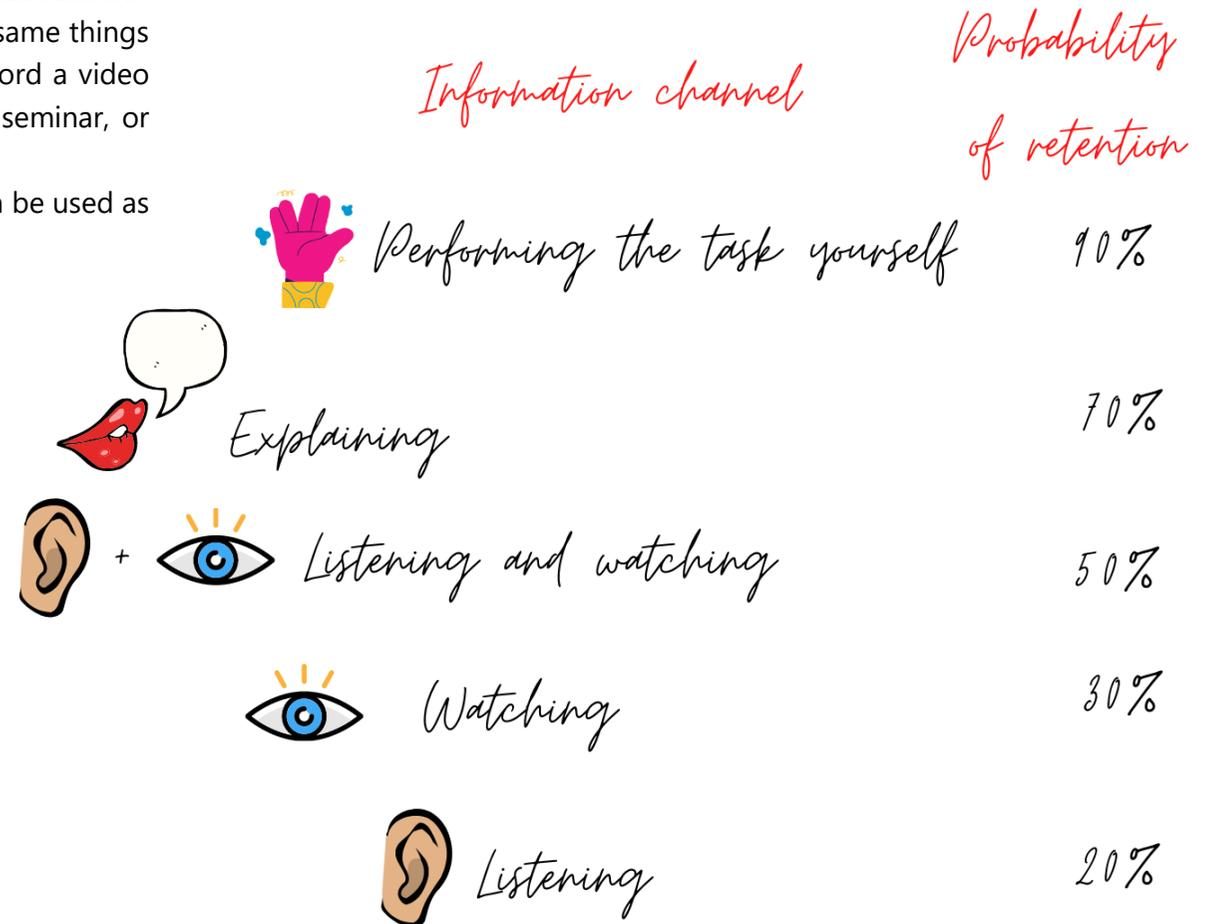 same things
ord a video
seminar, or
be used as
Information channel
Probability
of retention
Performing the task yourself 90%
Explaining 70%
+ Listening and watching 50%
Watching 30%
Listening 20%